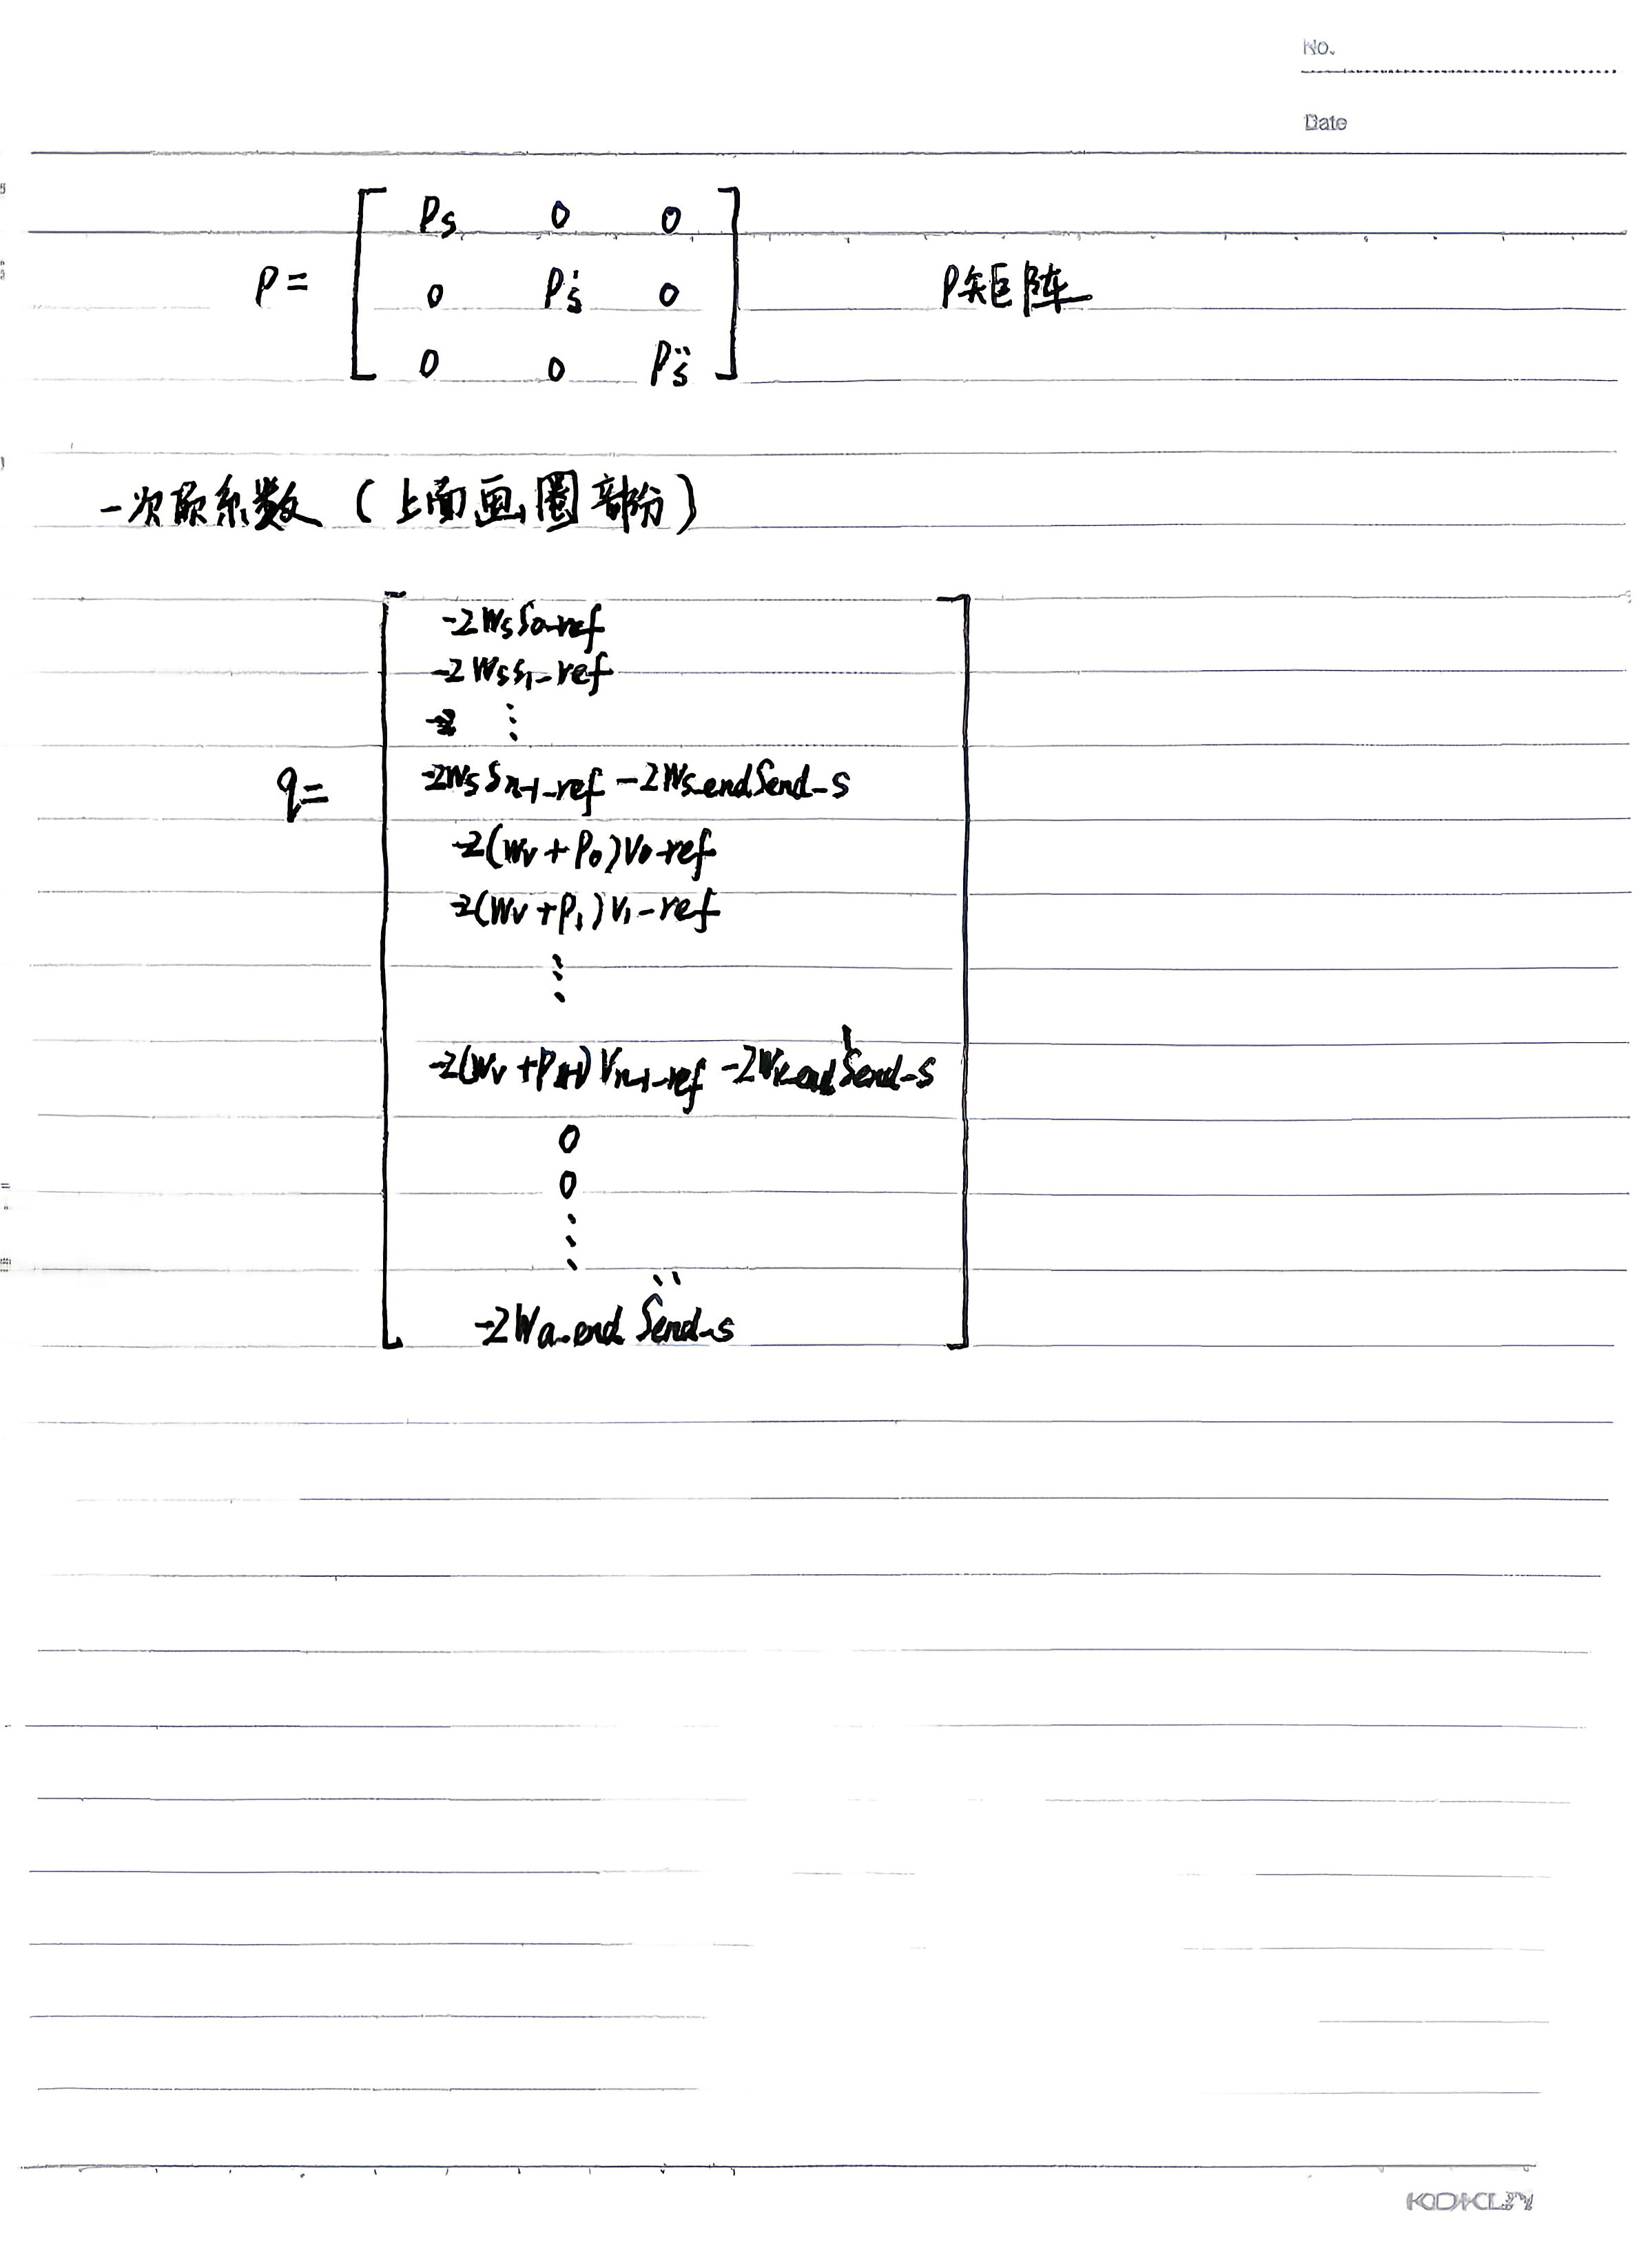 No.
Date
P = [ Ps 0 0
0 Pṡ 0
0 0 Ps̈ ]
P矩阵
一次项系数 (上面画圈部分)
q =
-2Ws S0-ref
-2Ws S1-ref
⋮
-2Ws Sn-1-ref -2Ws-end Send-s
-2(Wv + P0) V0-ref
-2(Wv + P1) V1-ref
⋮
-2(Wv + Pn-1) Vn-1-ref -2Wv-end Ṡend-s
0
0
⋮
-2Wa-end S̈end-s